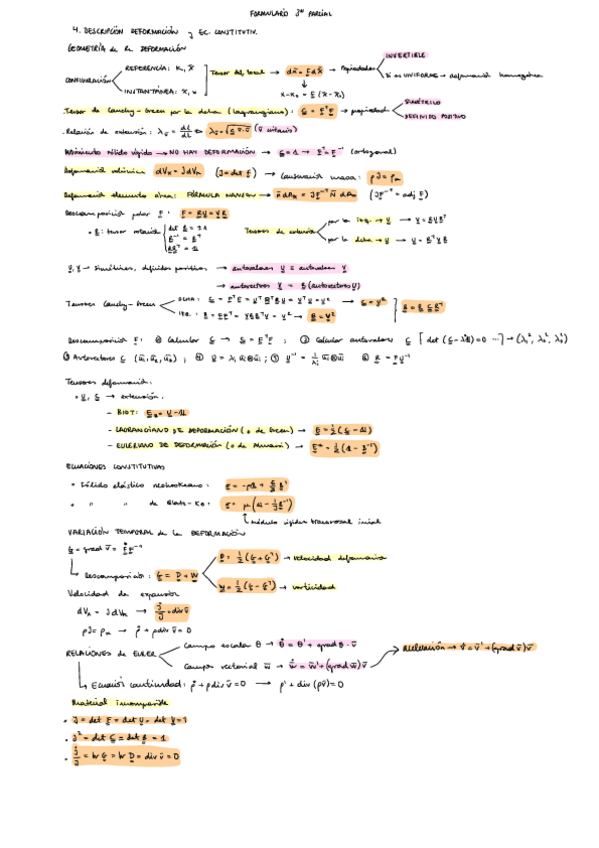 FORMULARIO 3er PARCIAL
4. DESCRIPCIÓN DEFORMACIÓN y EC. CONSTITUTIV.
GEOMETRÍA de la DEFORMACIÓN
CONFIGURACIÓN
REFERENCIA: K₀, X̄
INSTANTÁNEA: K, x
Tensor def. local → dx̄ = F dX̄ → Propiedades
INVERTIBLE
Si es UNIFORME → deformación homogénea
x - x₀ = F (X - X₀)
Tensor de Cauchy-Green por la dcha (lagrangiano): C = FᵀF → propiedades
SIMÉTRICO
DEFINIDO POSITIVO
Relación de extensión: λ = dl/dL
(ū unitario)
Movimiento rígido vigido → NO HAY DEFORMACIÓN → C = 1 → Fᵀ = F⁻¹ (ortogonal)
Deformación volúmica dVx = J dVX (J = det F) → Conservación masa: ρJ = ρ₀
Deformación elemento área: FÓRMULA NANSON → n̄ dAx = J F⁻ᵀ N̄ dAX (J F⁻ᵀ = adj F)
Descomposición polar F: F = RU = VR
• R: tensor rotación
det R = ±1
R⁻¹ = Rᵀ
RRᵀ = 1
Tensores de extensión
por la izq. → V → V = RURᵀ
por la dcha → U → U = RᵀVR
U, V → Simétricos, definidos positivos → autovalores U = autovalores V
→ autovectores V = R (autovectores U)
Tensores Cauchy-Green
DCHA: C = FᵀF = UᵀRᵀRU = UᵀU = U² → C = U²
IZQ.: B = FFᵀ = VRRᵀV = V² → B = V²
B = R C Rᵀ
Descomposición F: ① Calcular C → C = FᵀF ; ② Calcular autovalores C [det (C - λ²1) = 0 ...] → (λ₁², λ₂², λ₃²)
③ Autovectores C (ū₁, ū₂, ū₃) ; ④ U = λᵢ ūᵢ⊗ūᵢ ; ⑤ U⁻¹ = 1/λᵢ ūᵢ⊗ūᵢ ⑥ R = FU⁻¹
Tensores deformación:
• U, C → extensión.
- BIOT: E_B = U - 1
- LAGRANGIANO DE DEFORMACIÓN (o de Green) → E = ½ (C - 1)
- EULERIANO DE DEFORMACIÓN (o de Almansi) → E* = ½ (1 - B⁻¹)
ECUACIONES CONSTITUTIVAS
• Sólido elástico neohookeano:
• " " de Blatz-Ko:
módulo rigidez transversal inicial
VARIACIÓN TEMPORAL de la DEFORMACIÓN
G = grad v̄ = ḞF⁻¹
Descomposición: G = D + W
D = ½ (G + Gᵀ) → velocidad deformación
W = ½ (G - Gᵀ) → vorticidad
Velocidad de expansión
dVx = J dVX → J̇/J = div v̄
ρJ = ρ₀ → ρ̇ + ρ div v̄ = 0
RELACIONES de EULER
Campo escalar θ → θ̇ = θ' + grad θ · v̄
Campo vectorial w̄ → ẇ = w̄' + (grad w̄) v̄
Aceleración → v̇ = v̄' + (grad v̄) v̄
Ecuación continuidad: ρ̇ + ρ div v̄ = 0 → ρ' + div (ρv̄) = 0
Material incompresible
• J = det F = det U = det V = 1
• J² = det C = det B = 1
• J̇/J = tr G = tr D = div v̄ = 0